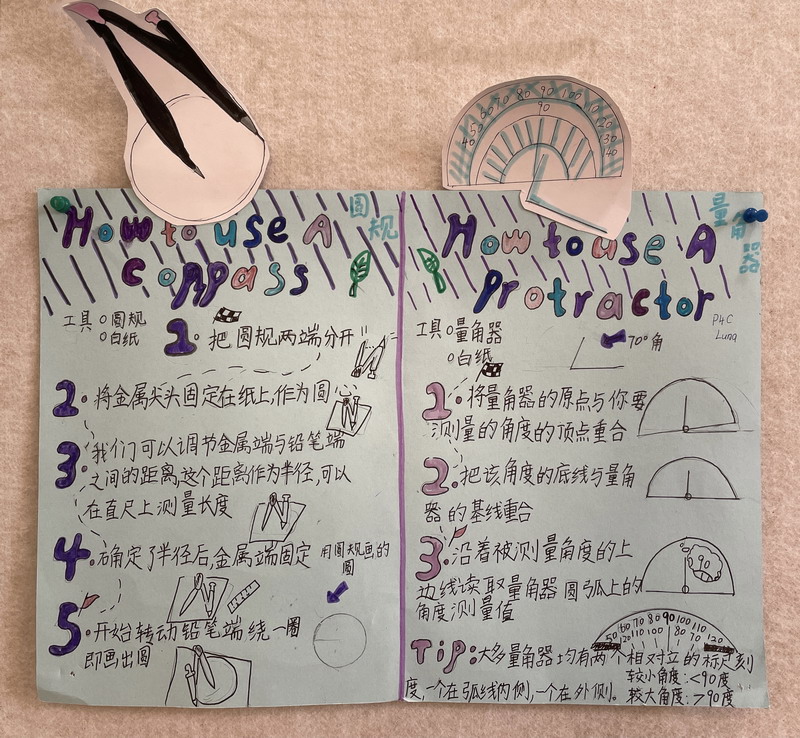 How to use A 圆规
Compass
工具 圆规
白纸
1. 把圆规两端分开
2. 将金属尖头固定在纸上,作为圆心
3. 我们可以调节金属端与铅笔端
之间的距离,这个距离作为半径,可以
在直尺上测量长度
4. 确定了半径后,金属端固定
用圆规画的
圆
5. 开始转动铅笔端绕一圈
即画出圆
40 50 60 70 80 90 100 110 120 130 140
90
How to use A 量角器
Protractor
P4C
Luna
工具 量角器
白纸
70°角
1. 将量角器的原点与你要
测量的角度的顶点重合
2. 把该角度的底线与量角
器的基线重合
3. 沿着被测量角度的上
边线读取量角器圆弧上的
角度测量值
90
50 60 70 80 90 100 110 120
120 110 100 80 70 60
Tip: 大多量角器均有两个相对立的标尺刻
度,一个在弧线内侧,一个在外侧。
较小角度:<90度
较大角度:>90度